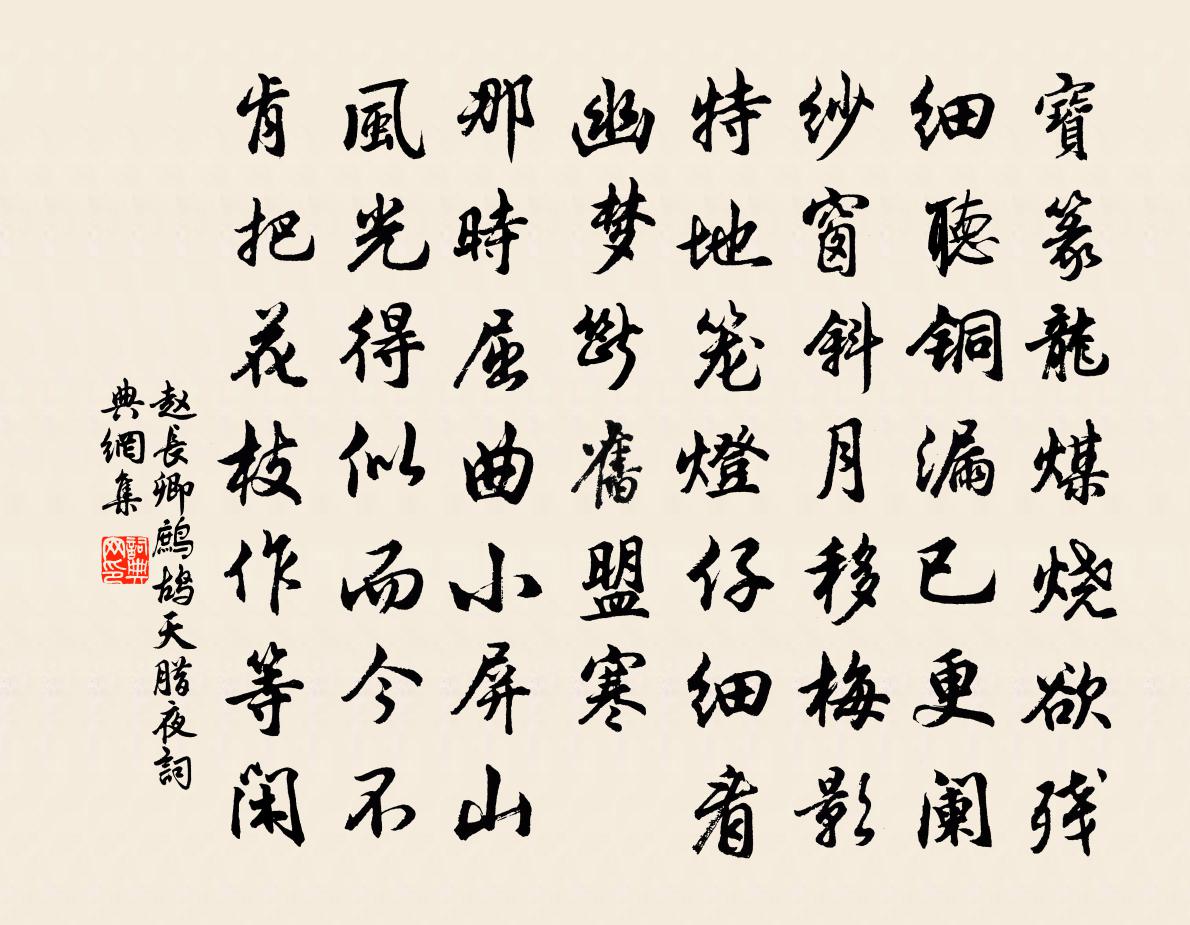 寶篆龍煤烧欲残
细聽铜漏已更阑
纱窗斜月移梅影
特地笼燈仔细看
幽梦断舊盟寒
那時屈曲小屏山
風光得似而今不
肯把花枝作等閑
赵長卿鷓鸪天腊夜詞
典網集
詞典网印